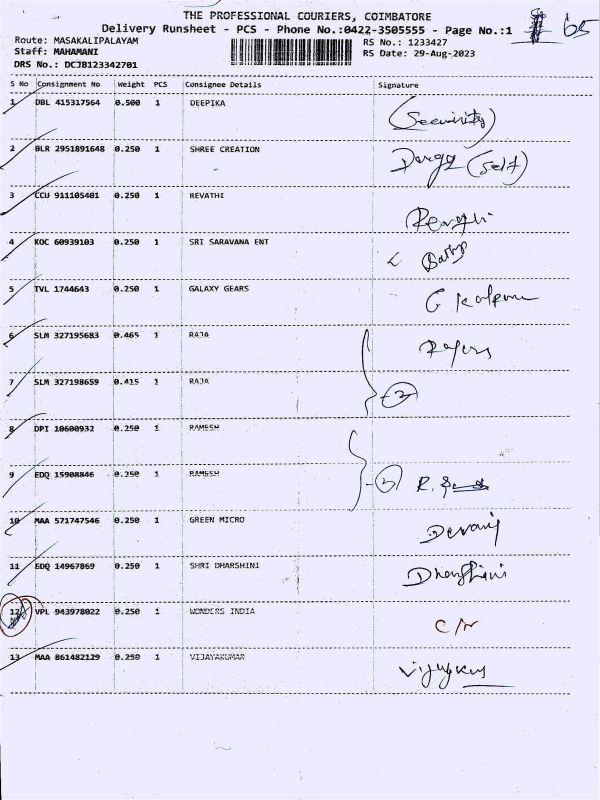 THE PROFESSIONAL COURIERS, COIMBATORE
Delivery Runsheet - PCS - Phone No.:0422-3505555 - Page No.:1
65
Route: MASAKALIPALAYAM
RS No.: 1233427
Staff: MAHAMANI
RS Date: 29-Aug-2023
DRS No.: DCJB123342701
S No Consignment No Weight PCS Consignee Details Signature
1 DBL 415317564 0.500 1 DEEPIKA
(Security)
2 BLR 2951891648 0.250 1 SHREE CREATION
(Self)
3 CCU 911105401 0.250 1 REVATHI
4 KOC 60939103 0.250 1 SRI SARAVANA ENT
5 TVL 1744643 0.250 1 GALAXY GEARS
6 SLM 327195683 0.465 1 RAJA
7 SLM 327198659 0.415 1 RAJA
2
8 DPI 10600932 0.250 1 RAMESH
9 EDQ 15908846 0.250 1 RAMESH
10 MAA 571747546 0.250 1 GREEN MICRO
11 EDQ 14967869 0.250 1 SHRI DHARSHINI
Dharshini
12 VPL 943978022 0.250 1 WONDERS INDIA
13 MAA 861482129 0.250 1 VIJAYAKUMAR